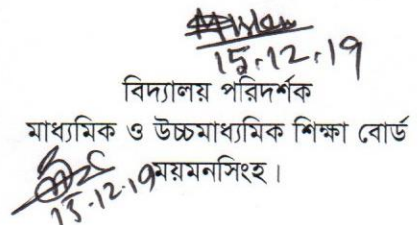 15.12.19
বিদ্যালয় পরিদর্শক
মাধ্যমিক ও উচ্চমাধ্যমিক শিক্ষা বোর্ড
ময়মনসিংহ।
15.12.19